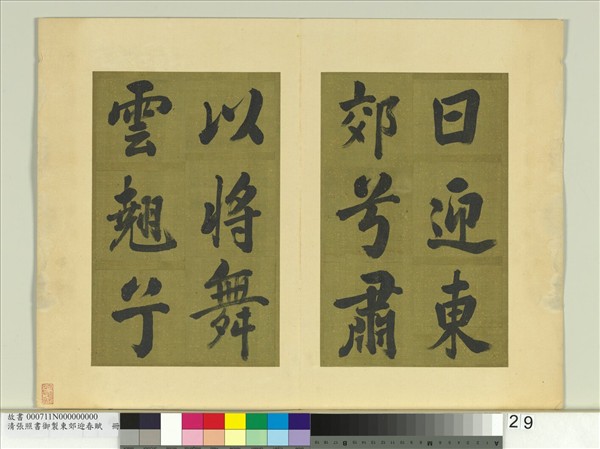 日迎東
郊兮肅
以將舞
雲翹兮
故書 000711N000000000
清張照書御製東郊迎春賦 冊
29